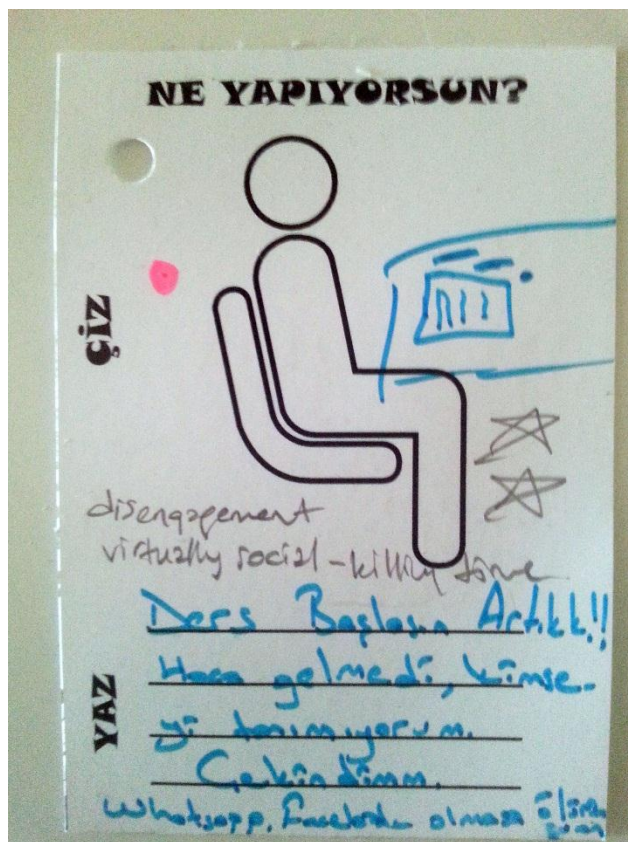 NE YAPIYORSUN?
ÇİZ
disengagement
virtually social - killing time
YAZ
Ders Başlasın Artıkk!!
Hoca gelmedi, kimse-
yi tanımıyorum.
Çekindimm.
Whatsapp, Facebook olmasa